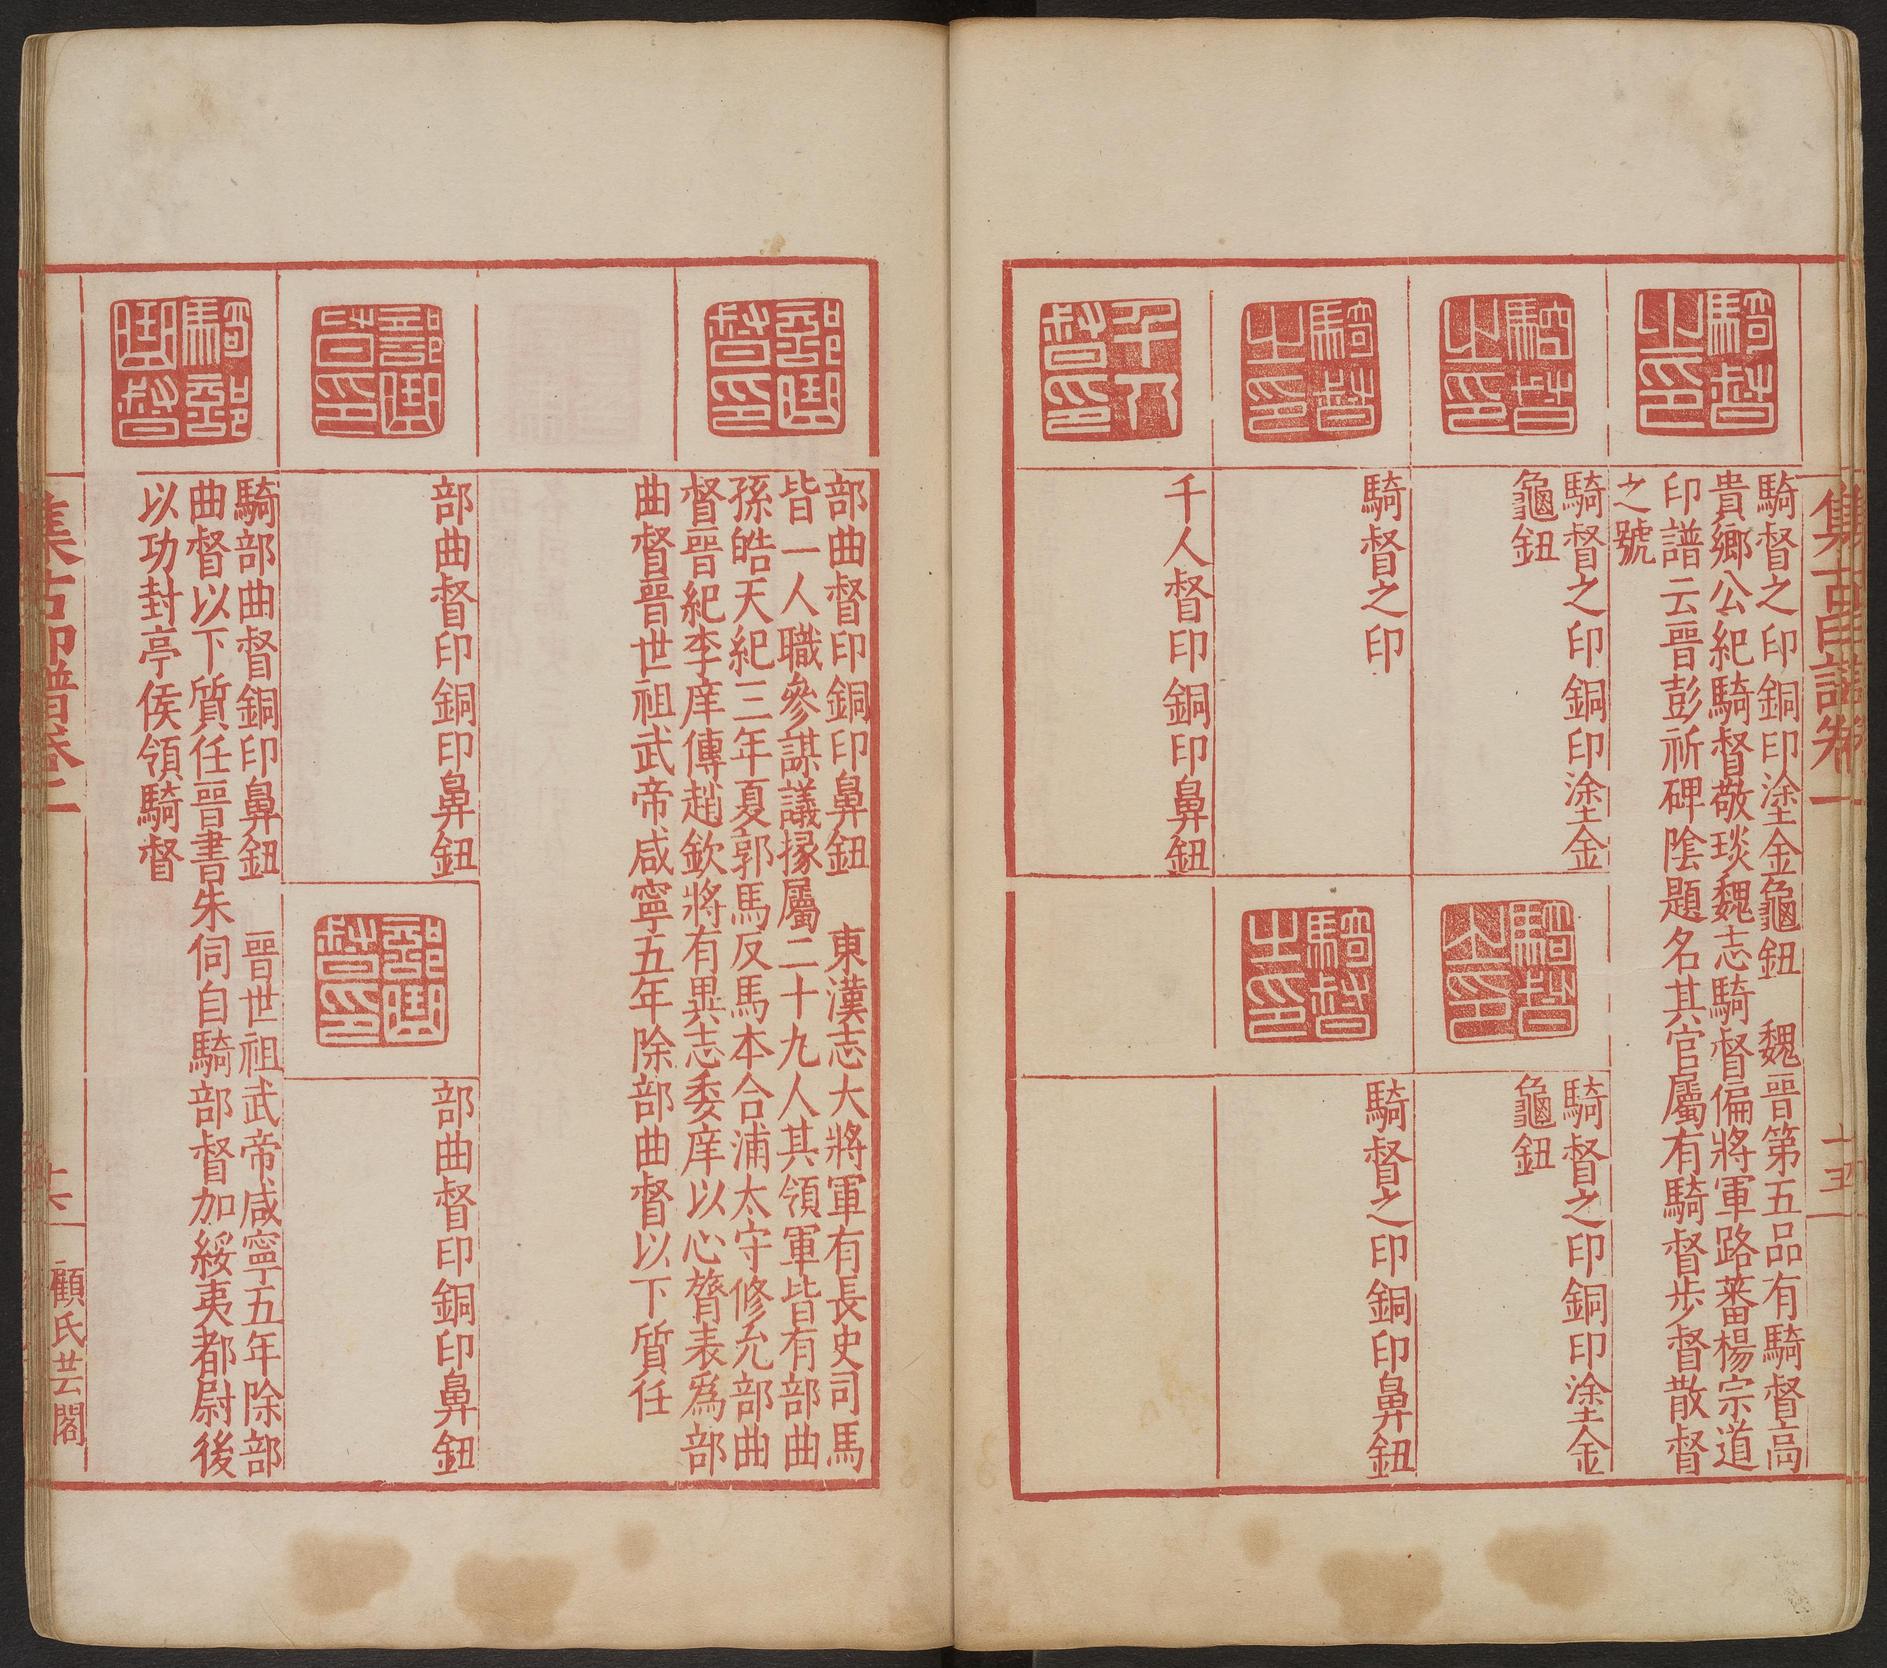 集古印譜卷二
十五
騎督之印
騎督之印銅印塗金龜鈕　魏晉第五品有騎督高
貴鄉公紀騎督敬琰魏志騎督偏將軍路蕃楊宗道
印譜云晉彭祈碑陰題名其官屬有騎督步督散督
之號
騎督之印
騎督之印銅印塗金
龜鈕
騎督之印
騎督之印銅印塗金
龜鈕
騎督之印
騎督之印
騎督之印
騎督之印銅印鼻鈕
千人督印
千人督印銅印鼻鈕
部曲督印
部曲督印銅印鼻鈕　東漢志大將軍有長史司馬
皆一人職參謀議掾屬二十九人其領軍皆有部曲
孫皓天紀三年夏郭馬反馬本合浦太守修允部曲
督晉紀李庠傳趙欽將有異志委庠以心膂表爲部
曲督晉世祖武帝咸寧五年除部曲督以下質任
部曲督印
部曲督印銅印鼻鈕
部曲督印
部曲督印銅印鼻鈕
騎部曲督
騎部曲督銅印鼻鈕　晉世祖武帝咸寧五年除部
曲督以下質任晉書朱伺自騎部督加綏夷都尉後
以功封亭侯領騎督
集古印譜卷二
十六
顧氏芸閣